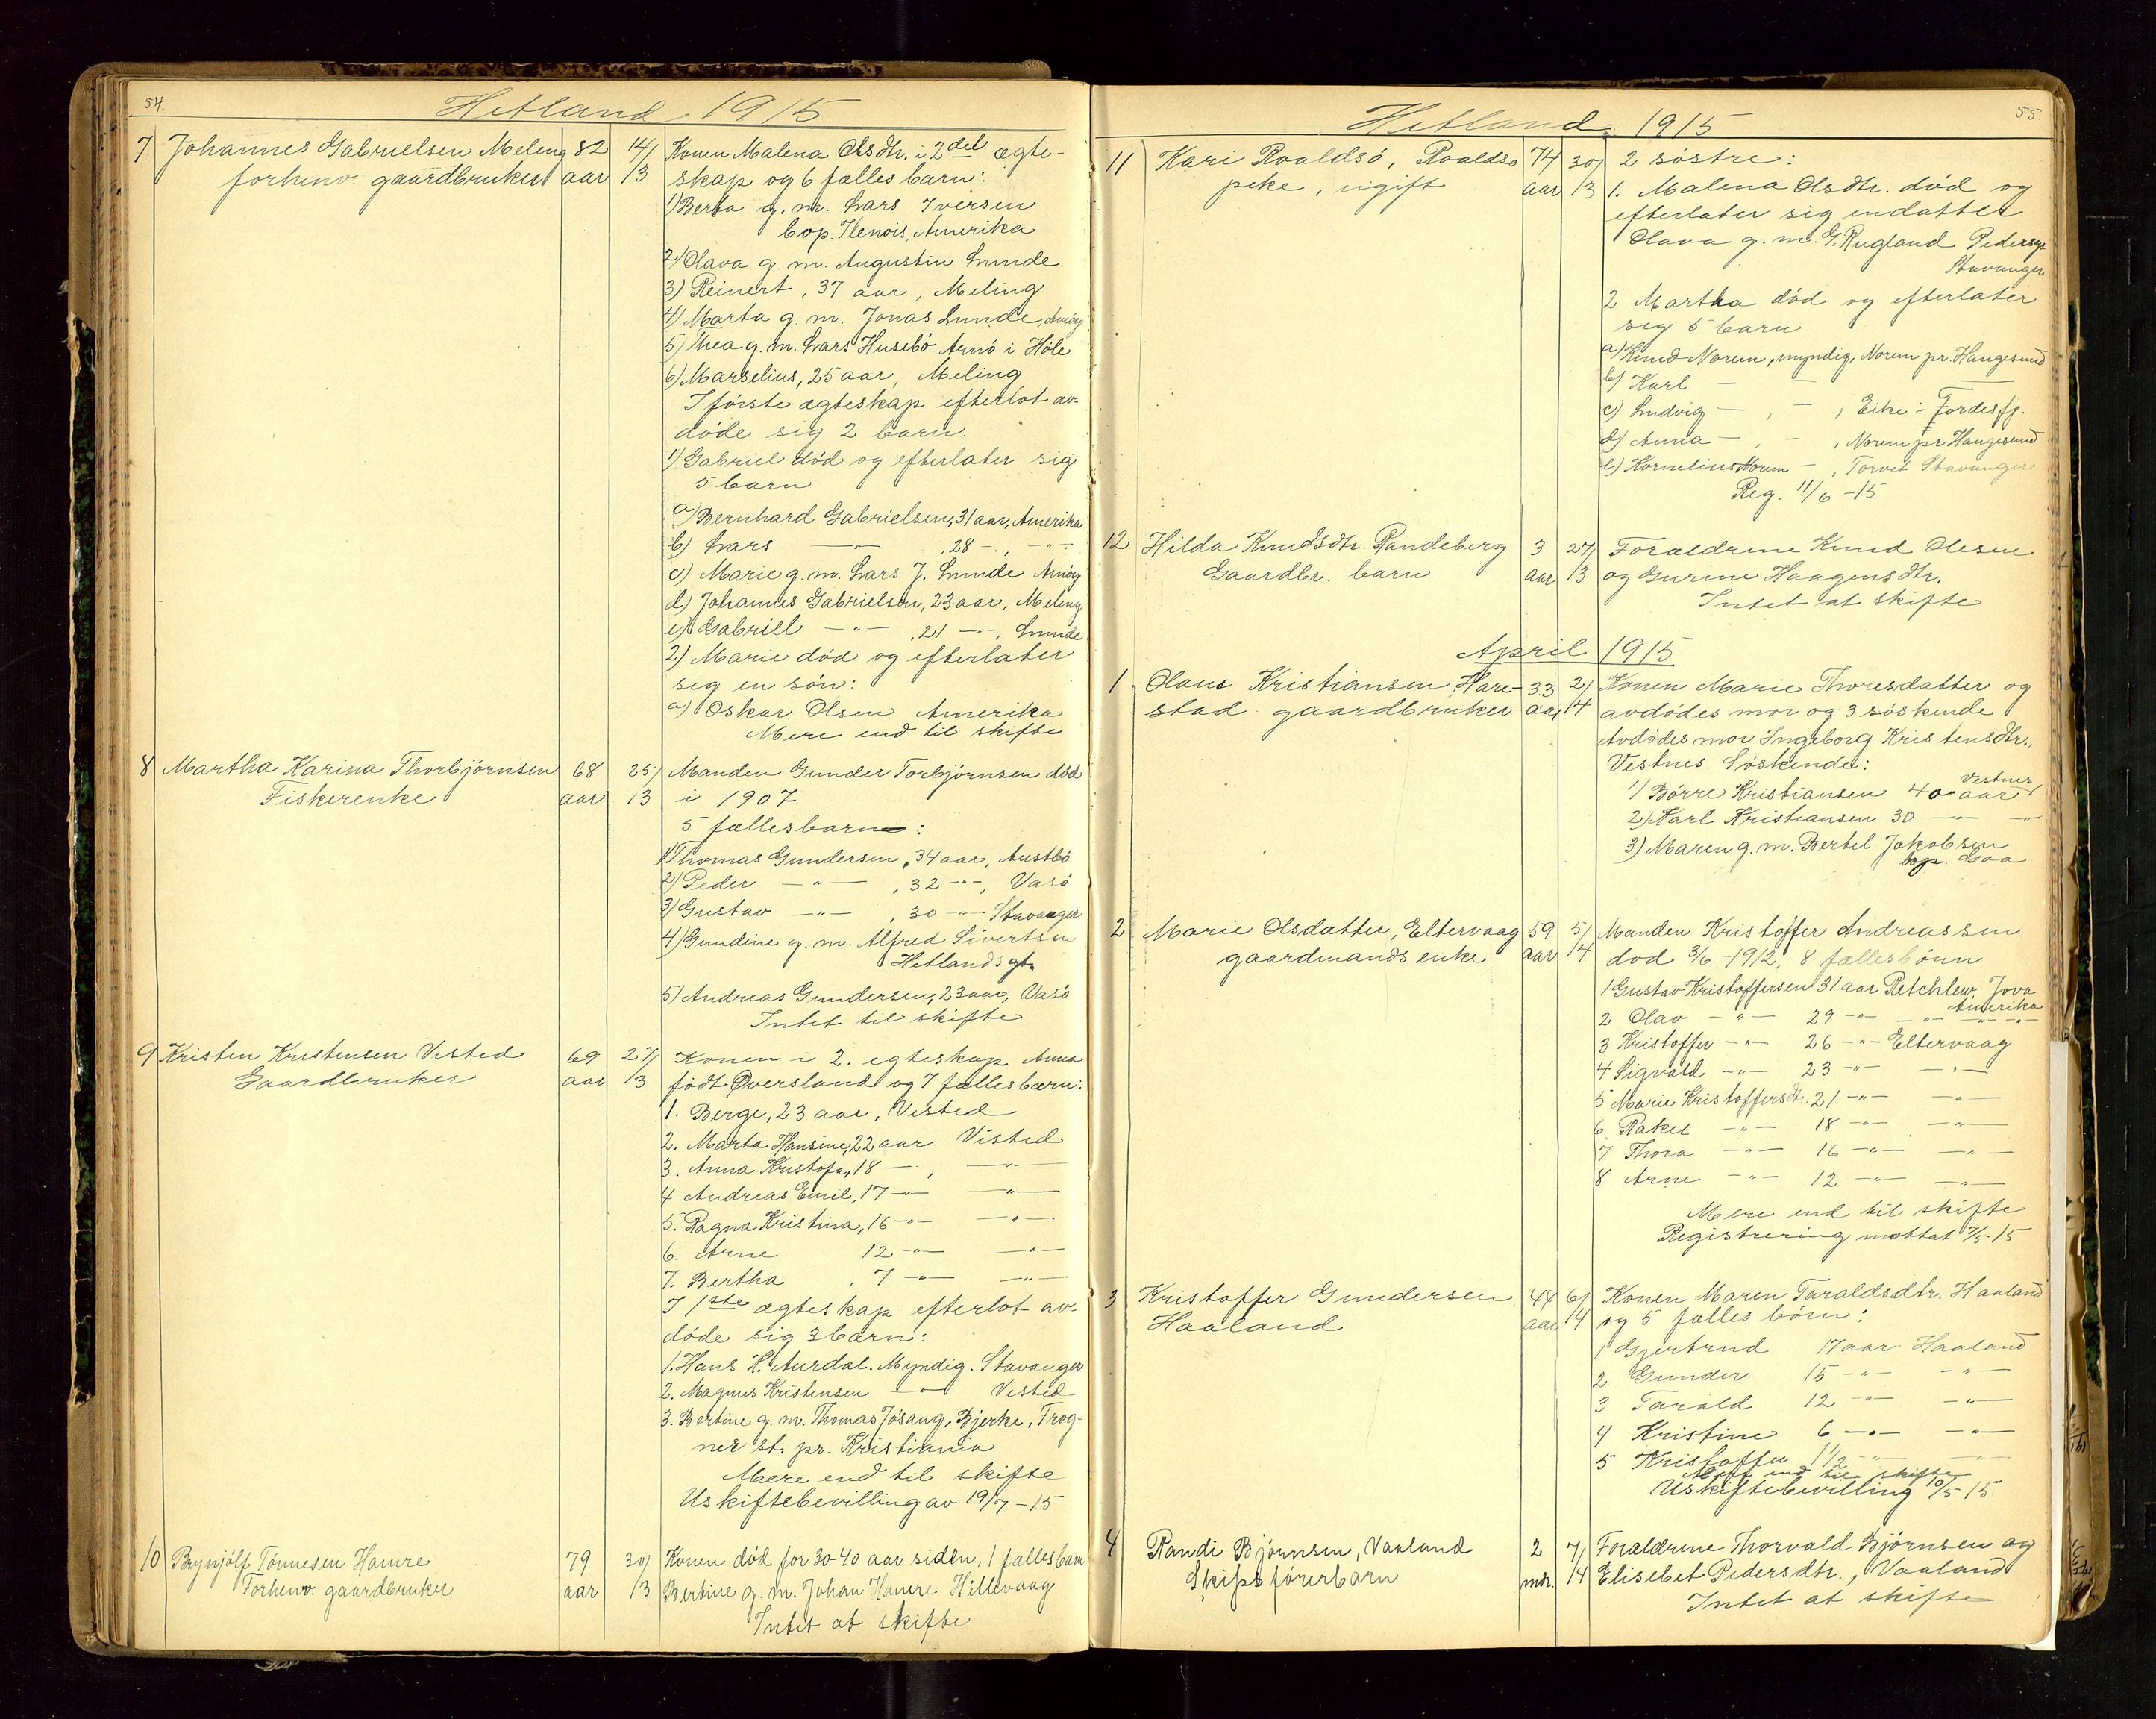 54.
Hetland 1915
7 Johannes Gabrielsen Meling 82 14/ Konen Malena Olsdtr. i 2del ægte-
forhenv. gaardbruker aar 3 skap og 6 fælles barn:
1) Berta g. m. Lars Iversen
bop. Ilenois, Amerika
2) Olava g. m. Augustin Lunde
3) Reinert, 37 aar, Meling
4) Marta g. m. Jonas Lunde, Amöy
5) Thea g. m. Lars Husebö Arnö i Höle
6) Marselius, 25 aar, Meling
I förste ægteskap efterlot av-
döde sig 2 barn.
1) Gabriel död og efterlater sig
5 barn
a) Bernhard Gabrielsen, 31 aar, Amerika
b) Lars —"— , 28 — , —"—
c) Marie g. m. Lars J. Lunde Amöy
d) Johannes Gabrielsen, 23 aar, Meling
e) Gabriell —"— , 21 —"—, Lunde
2) Marie död og efterlater
sig en sön:
a) Oskar Olsen Amerika
Mere end til skifte
8 Martha Karina Thorbjørnsen 68 25/ Manden Gunder Torbjörnsen död
Fiskerenke aar 3 i 1907
5 fællesbarn:
1) Thomas Gundersen, 34 aar, Austbö
2) Peder —"— , 32 —"—, Vasö
3) Gustav —"— , 30 —"— Stavanger
4) Gundine g. m. Alfred Sivertsen
Hetlandsgt.
5) Andreas Gundersen, 23 aar, Vasö
Intet til skifte
9 Kristen Kristensen Visted 69 27/ Konen i 2. egteskap Anna
Gaardbruker aar 3 födt Øversland og 7 fællesbarn:
1. Berge, 23 aar, Visted
2. Marta Hansine, 22 aar Visted
3. Anna Kristofa, 18 — , —"—
4 Andreas Emil, 17 —"— —"—
5. Ragna Kristina, 16 —"— —"—
6. Arne 12 —"— —"—
7. Bertha , 7 —"— —"—
I 1ste ægteskap efterlot av-
döde sig 3 barn:
1. Hans K. Aurdal. Myndig. Stavanger
2. Magnus Kristensen —"— Visted
3. Bertine g. m. Thomas Jösang, Bjerke, Trog-
ner st. pr. Kristiania
Mere end til skifte
Uskiftebevilling av 19/7 - 15
10 Brynjólf Tönnesen Hamre 79 30/ Konen död for 30-40 aar siden, 1 fællesbarn
Forhenv. gaardbruker aar 3 Bertine g. m. Johan Hamre Hillevaag
Intet at skifte
55.
Hetland 1915
11 Kari Roaldsö, Roaldsö 74 30/ 2 söstre:
peke, ugift aar 3 1. Malena Olsdtr. död og
efterlater sig en datter
Olava g. m. G. Rugland Pedersgt
Stavanger
2 Martha död og efterlater
sig 5 barn
a) Knud Norem, myndig, Norem pr. Haugesund
b) Karl — — —
c) Ludvig — , — , Eike i Fördesfj.
d) Anna — , — , Norem pr Haugesund
e) Kornelius Norem — , Torvet Stavanger
Reg. 11/6 - 15
12 Hilda Knudsdtr. Randeberg 3 27/ Forældrene Knud Olesen
Gaardbr. barn aar 3 og Gurine Haagensdtr.
Intet at skifte
April 1915
1 Olaus Kristiansen Hare- 33 2/ Konen Marie Thoresdatter og
stad gaardbruker aar 4 avdödes mor og 3 söskende
Avdödes mor Ingeborg Kristensdtr.,
Vestnes. Söskende:
1) Börre Kristiansen 40 aar Vestnes
2) Karl Kristiansen 30 —"— —"—
3) Maren g. m. Bertel Jakobsen
bop.
2 Marie Olsdatter, Eltervaag 59 5/ Manden Kristoffer Andreassen
gaardmands enke aar 4 död 3/6 - 1912, 8 fællesbönn
1 Gustav Kristoffersen 31 aar Jova
Amerika
2 Olav —"— 29 —"— —"— —"—
3 Kristoffer —"— 26 —"— Eltervaag
4 Sigvald —"— 23 —"— —"—
5 Marie Kristoffersdtr. 21 —"— —"—
6 Rakel —"— 18 —"— —"—
7 Thora —"— 16 —"— —"—
8 Arne —"— 12 —"— —"—
Mere end til skifte
Registrering mottat 7/5 - 15
3 Kristoffer Gundersen 44 6/ Konen Maren Taraldsdtr. Haaland
Haaland aar 4 og 5 fælles börn:
1 Gjertrud 17 aar Haaland
2 Gunder 15 —"— —"—
3 Tarald 12 —"— —"—
4 Kristine 6 —"— —"—
5 Kristoffer 1 1/2 —"— —"—
Mere end til skifte
Uskiftebevilling 10/5 - 15
4 Randi Bjørnsen, Vaaland 2 7/ Forældrene Thorvald Bjørnsen og
Skipsførerbarn mdr. 4 Elisebet Pedersdtr., Vaaland
Intet at skifte